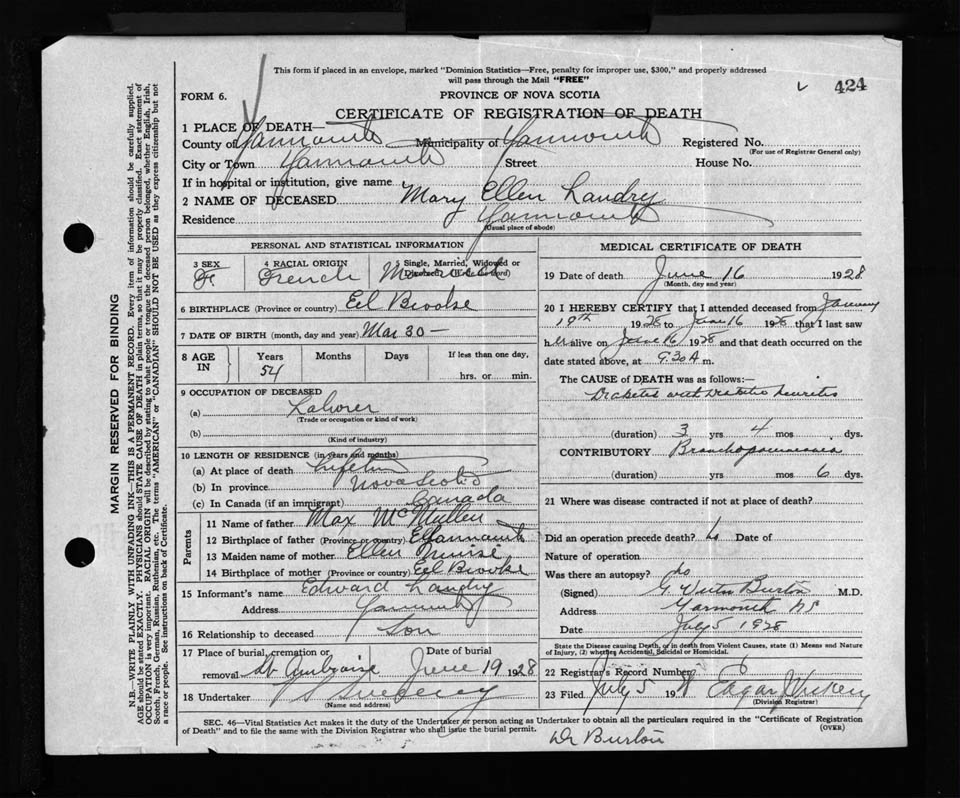 This form if placed in an envelope, marked "Dominion Statistics—Free, penalty for improper use, $300," and properly addressed
will pass through the Mail "FREE"
424
FORM 6.
PROVINCE OF NOVA SCOTIA
CERTIFICATE OF REGISTRATION OF DEATH
1 PLACE OF DEATH—
County of Yarmouth Municipality of Yarmouth Registered No.
(For use of Registrar General only)
City or Town Yarmouth Street House No.
If in hospital or institution, give name
2 NAME OF DECEASED Mary Ellen Landry
Residence Yarmouth
(Usual place of abode)
PERSONAL AND STATISTICAL INFORMATION
3 SEX 4 RACIAL ORIGIN 5 Single, Married, Widowed or
Divorced (Write the word)
F. French Married
6 BIRTHPLACE (Province or country) Eel Brooke
7 DATE OF BIRTH (month, day and year) Mar 30 —
8 AGE IN Years Months Days If less than one day,
54 hrs. or min.
9 OCCUPATION OF DECEASED
(a) Laborer
(Trade or occupation or kind of work)
(b)
(Kind of industry)
10 LENGTH OF RESIDENCE (in years and months)
(a) At place of death Lifetime
(b) In province Nova Scotia
(c) In Canada (if an immigrant) Canada
Parents
11 Name of father Max McMullen
12 Birthplace of father (Province or country)
13 Maiden name of mother Ellen
14 Birthplace of mother (Province or country) Eel Brooke
15 Informant's name Edward Landry
Address Yarmouth
16 Relationship to deceased Son
17 Place of burial, cremation or removal Date of burial
St Ambroise June 19 1928
18 Undertaker V S Sweeney
(Name and address)
MEDICAL CERTIFICATE OF DEATH
19 Date of death June 16 1928
(Month, day and year)
20 I HEREBY CERTIFY that I attended deceased from January
19th 1928 to June 16 1928 that I last saw
her alive on June 16 1928 and that death occurred on the
date stated above, at 9.30 A m.
The CAUSE of DEATH was as follows:—
Diabetes with Diabetic Neuritis
(duration) 3 yrs 4 mos dys.
CONTRIBUTORY Bronchopneumonia
(duration) yrs mos 6 dys.
21 Where was disease contracted if not at place of death?
Did an operation precede death? No Date of
Nature of operation
Was there an autopsy? No
(Signed) G. Victor Burton M.D.
Address Yarmouth NS
Date July 5 1928
State the Disease causing Death, or in death from Violent Causes, state (1) Means and Nature
of Injury, (2) whether Accidental, Suicidal or Homicidal.
22 Registrar's Record Number
23 Filed July 5 1928 Edgar J Vickery
(Division Registrar)
SEC. 46—Vital Statistics Act makes it the duty of the Undertaker or person acting as Undertaker to obtain all the particulars required in the "Certificate of Registration
of Death" and to file the same with the Division Registrar who shall issue the burial permit.
(OVER)
Dr Burton
MARGIN RESERVED FOR BINDING
N.B.—WRITE PLAINLY WITH UNFADING INK—THIS IS A PERMANENT RECORD. Every item of information should be carefully supplied.
AGE should be stated EXACTLY. PHYSICIANS should STATE CAUSE OF DEATH in plain terms, so that it may be properly classified. Exact statement of
OCCUPATION is very important. RACIAL ORIGIN will be described by stating to what people or tongue the deceased person belonged, whether English, Irish,
Scotch, French, German, Russian, Ruthenian, etc. The terms "AMERICAN" or "CANADIAN" SHOULD NOT BE USED as they express citizenship but not
a race or people. See instructions on back of Certificate.